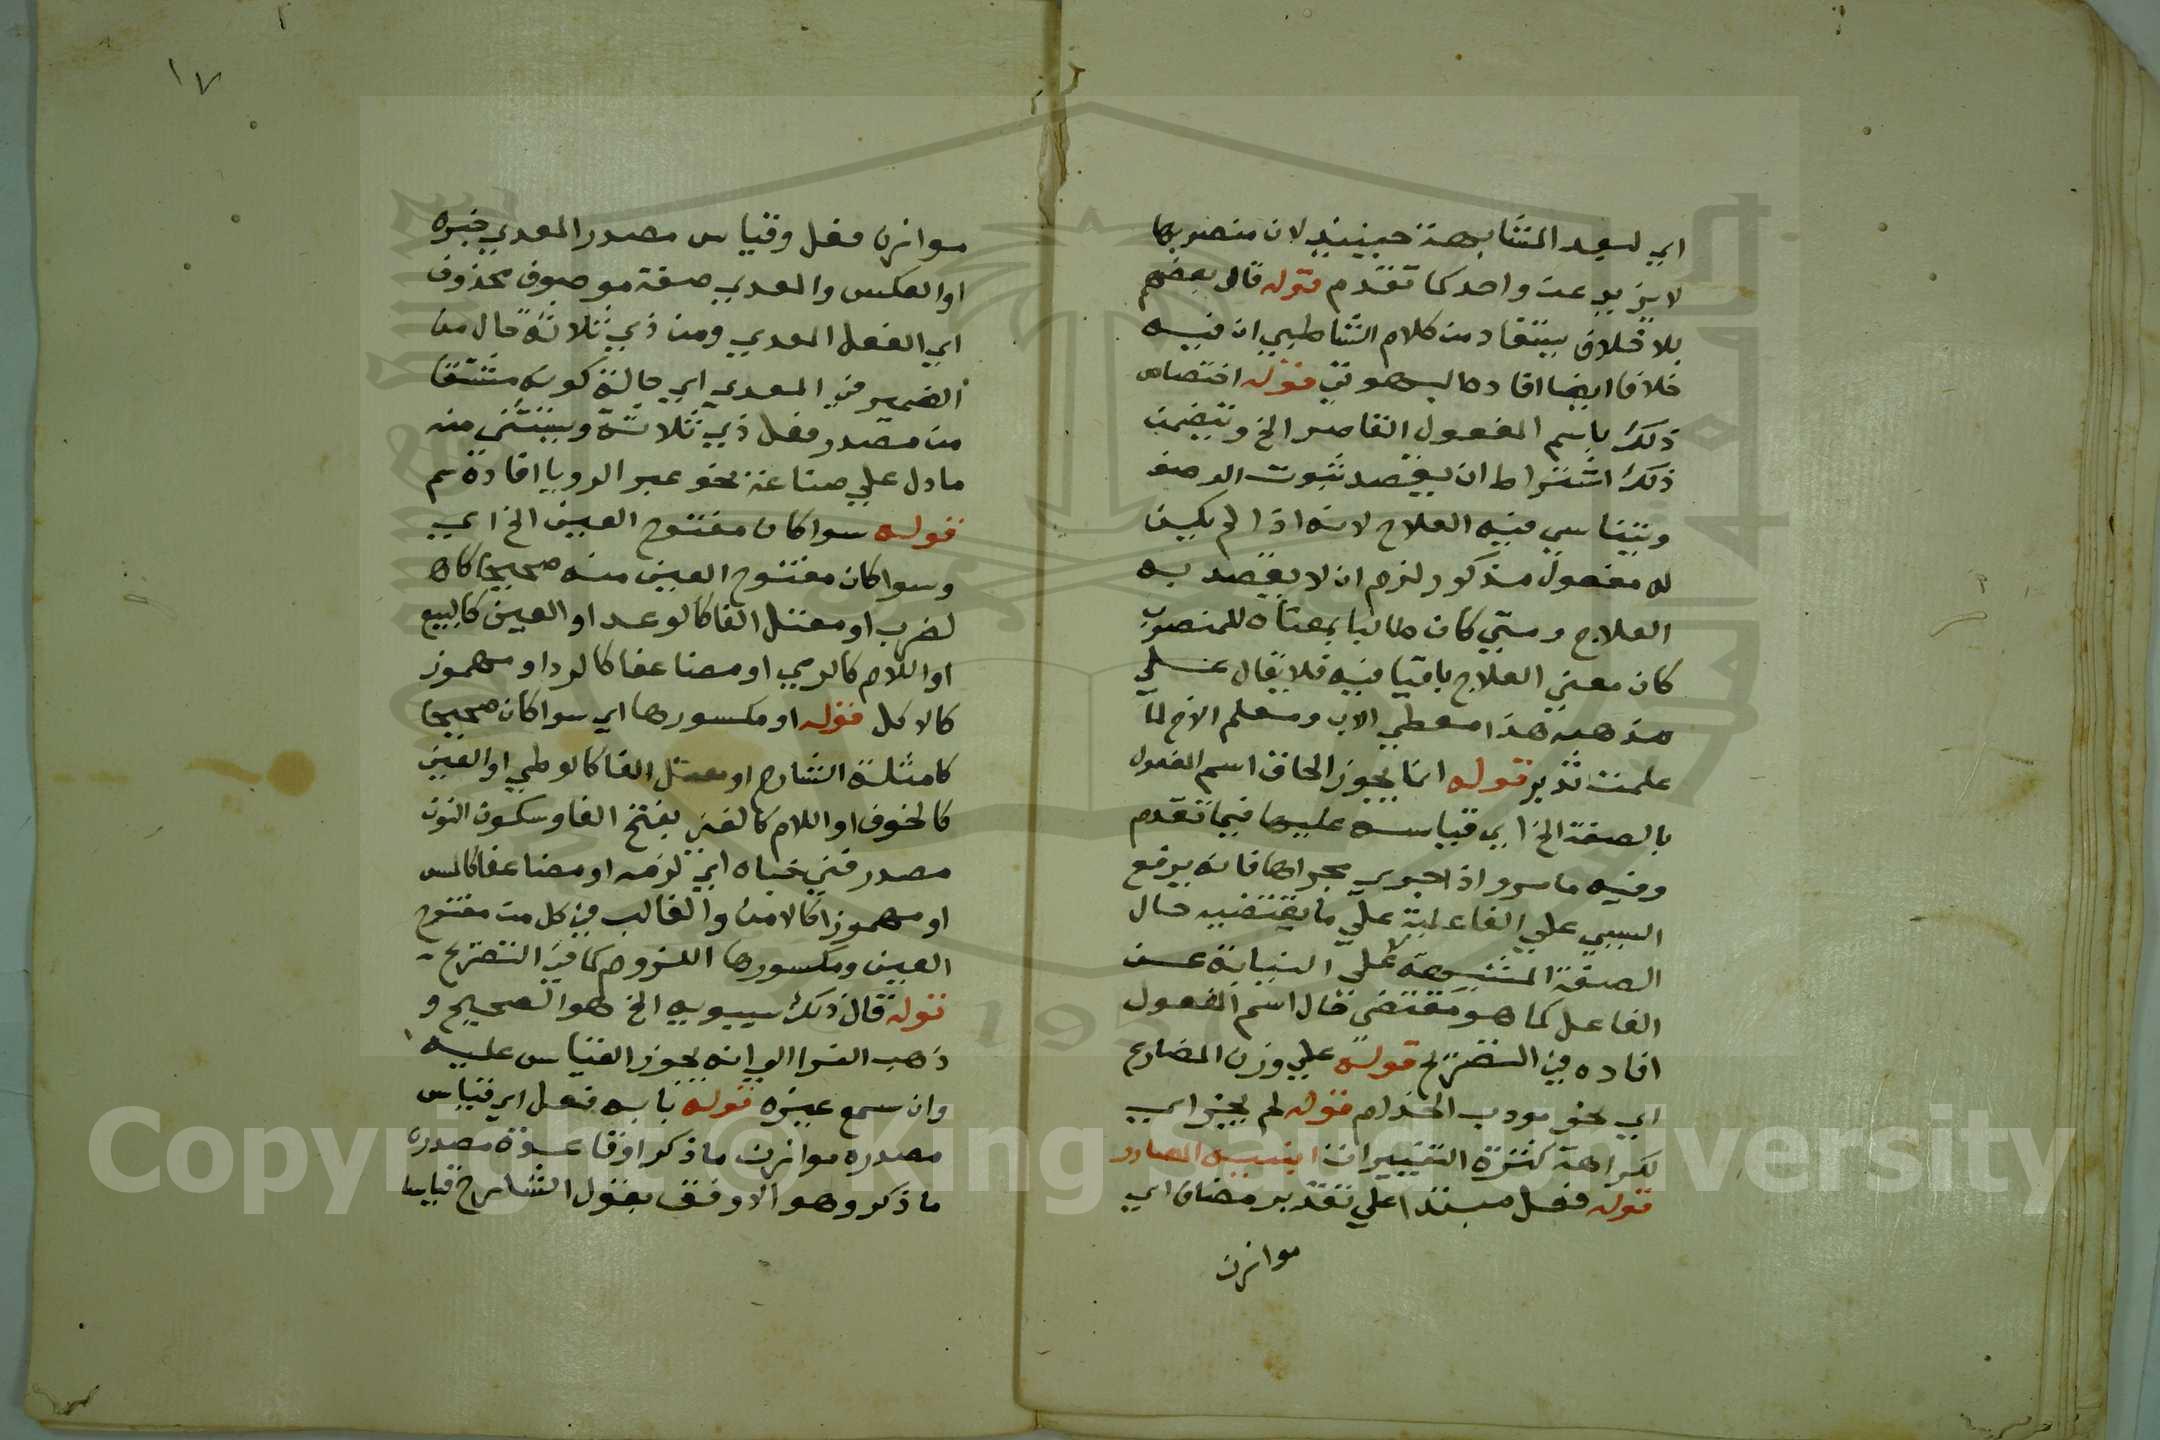 اي لبعد المشابهة حينيذ لان منصوبها
لا يزيد عن واحد كما تقدم قوله قال بعضهم
بلا خلاف يستفاد من كلام الشاطبي ان فيه
خلافا ايضا افاده البهوتي قوله اختصاص
ذلك باسم المفعول القاصر الخ ويتضمن
ذلك اشتراط ان يقصد ثبوت الوصف
ويتناسي فيه العلاج لانه اذا لم يكن
له مفعول مذكور لزم ان لا يقصد به
العلاج ومتي كان طالبا بمعناه للمنصوب
كان معني العلاج باقيا فيه فلا يقال علي
مذهبه هذا معطي الاب ومعلم الاخ لما
علمت تدبر قوله انما يجوز الحاق اسم المفعول
بالصفة الخ اي قياسه عليها فيما تقدم
وفيه ما مر واذا جري مجراها فانه يرفع
السببي علي الفاعلية علي ما يقتضيه حال
الصفة المشبهة لا علي النيابة عن
الفاعل كما هو مقتضي حال اسم المفعول
افاده في التصريح قوله علي وزن المضارع
اي نحو مودب الخدام قوله لم يجز اي
لكراهة كثرة التغييرات ابنية المصادر
قوله فعل مبتدا علي تقدير مضاف اي
موازن
١٧
موازن فعل وقياس مصدر المعدي خبره
او العكس والمعدي صفة موصوف محذوف
اي الفعل المعدي ومن ذي ثلاثة حال من
الضمير في المعدي اي حالة كونه مشتقا
من مصدر فعل ذي ثلاثة ويستثني منه
ما دل علي صناعة نحو عبر الرويا افاده سم
قوله سوا كان مفتوح العين الخ اي
وسوا كان مفتوح العين منه صحيحا كا
لضرب او معتل الفا كالوعد او العين كالبيع
او اللام كالرمي او مضاعفا كالرد او مهموز
كالاكل قوله او مكسورها اي سوا كان صحيحا
كامثلة الشارح او معتل الفا كالوطي او العين
كالخوف او اللام كالفني بفتح الفا وسكون النون
مصدر فني حياه اي لزمه او مضاعفا كالمس
او مهموزا كالامن والغالب في كل من مفتوح
العين ومكسورها اللزوم كما في التصريح
قوله قال ذلك سيبويه الخ هو الصحيح و
ذهب الفرا الي انه يجوز القياس عليه
وان سمع غيره قوله بابه فعل اي قياس
مصدره موازن ما ذكر او قاعدة مصدره
ما ذكر وهو الاوفق بقول الشارح قياسا
Copyright © King Saud University
1957